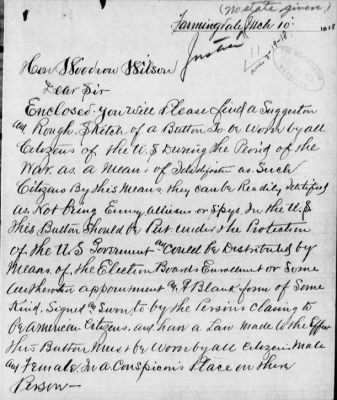 (no state given)
Farmingdale, Mch 10 1918
Hon Woodrow Wilson
Dear Sir
Enclosed You Will Please find a Suggestion
an Rough Sketch of a Button to be Worn by all
Citizens of the U.S During the Peroid of the
War. as a Means of as Such
Citizens By this Means they can be Readily Identified
as Not being Enmy or Spys. In the U.S
this Button Should be Put under the Protection
of the U.S Goverment an Could be Distributed by
Means of, the Election Boards Enrollment or Some
appointment &. A Blank form of Some
Kind, Signed & Sworn to by the Persons Claiming to
be American Citizens, an have a Law Made to the Effect
this Button Must be Worn by all Citizens Male
an Female. In a Place on there
Person—